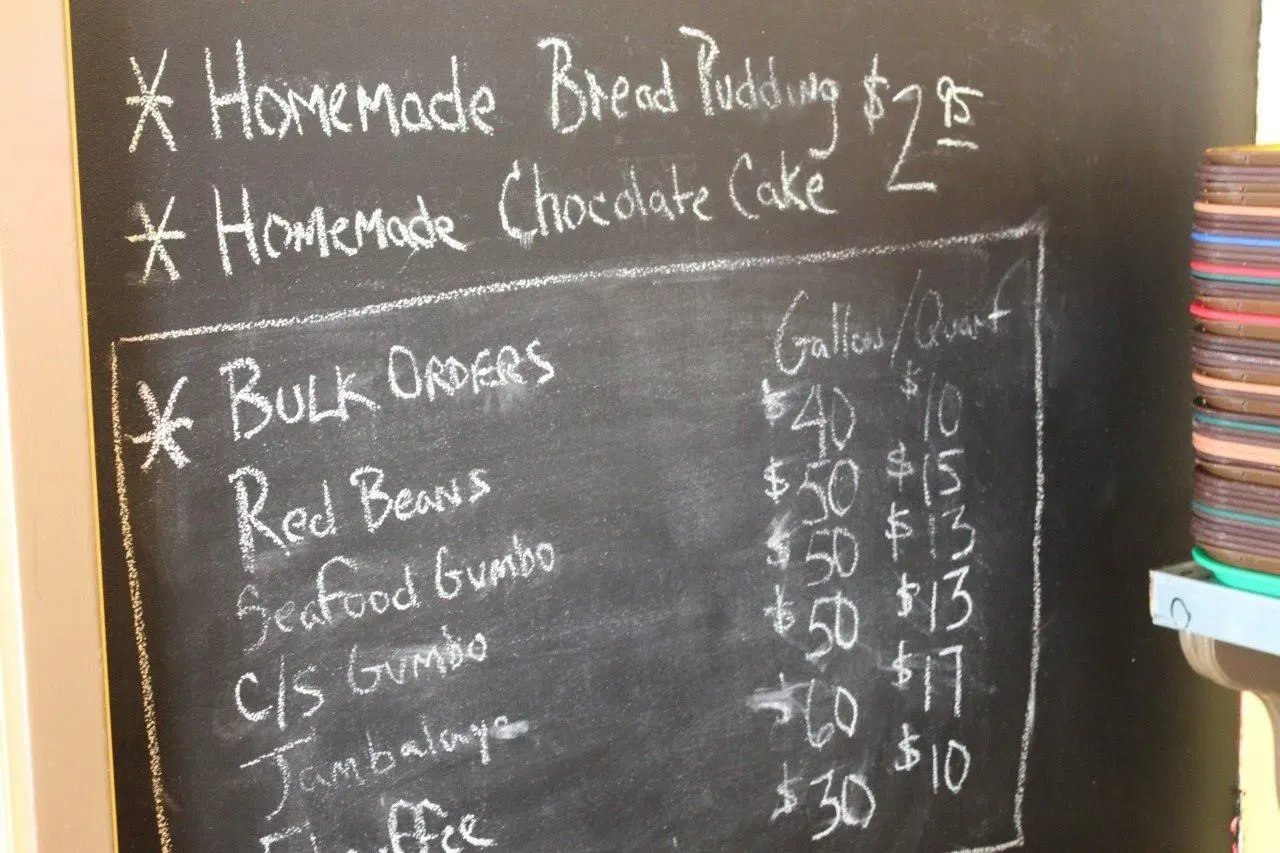 * Homemade Bread Pudding $2.95
* Homemade Chocolate Cake
* BULK ORDERS Gallon/Quart
Red Beans $40 $10
Seafood Gumbo $50 $15
C/S Gumbo $50 $13
Jambalaya $50 $13
$60 $17
$30 $10